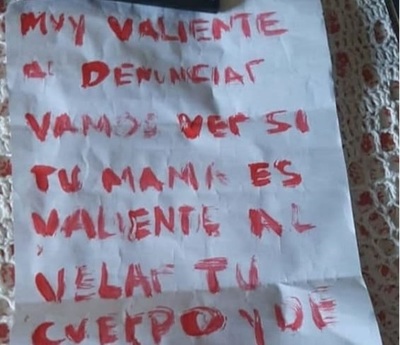 MVY VALIENTE
AL DENUNCIAR
VAMOS VER SI
TU MAMA ES
VALIENTE AL
VELAR TU
CUERPO Y DE